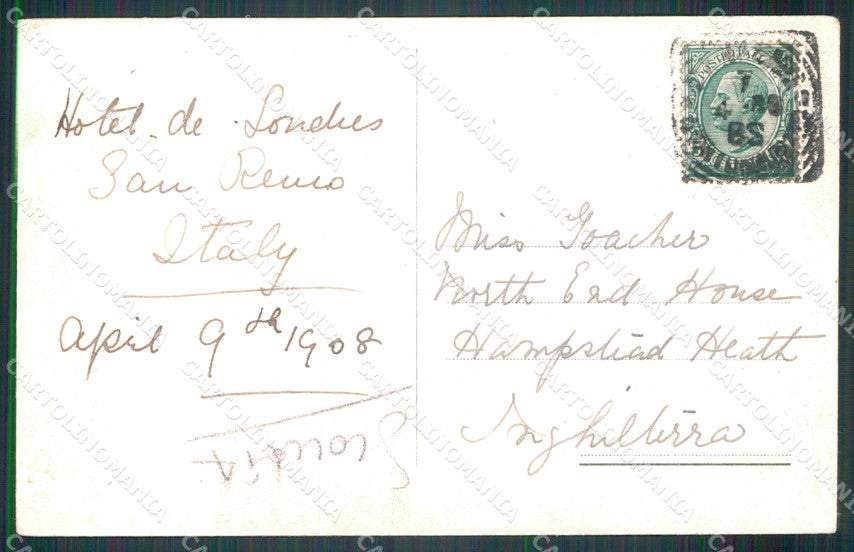 Hotel de Londres
San Remo
Italy
April 9th 1908
Miss Goacher
North End House
Hampstead Heath
Inghilterra
CARTOLINOMANIA